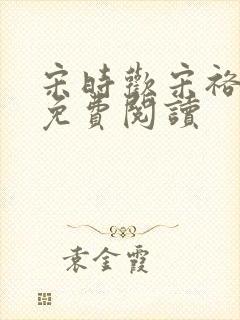 宋時歡宋裕
免費閱讀
袁金霞